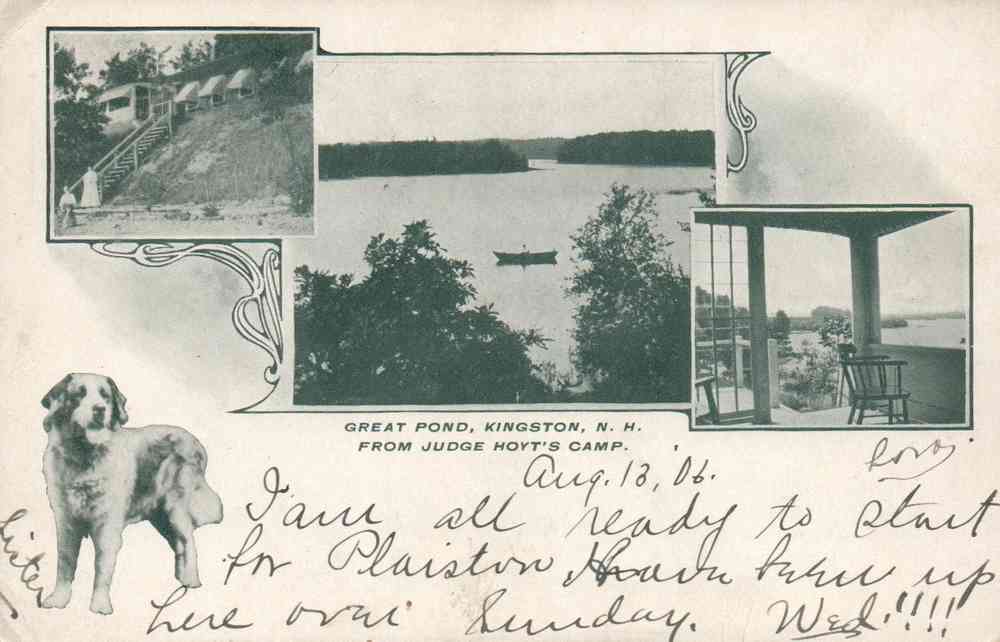 GREAT POND, KINGSTON, N. H.
FROM JUDGE HOYT'S CAMP.
Aug. 13, 06.
I am all ready to start
for Plaiston Have been up
here over Sunday. Wed'!!!!
Sister